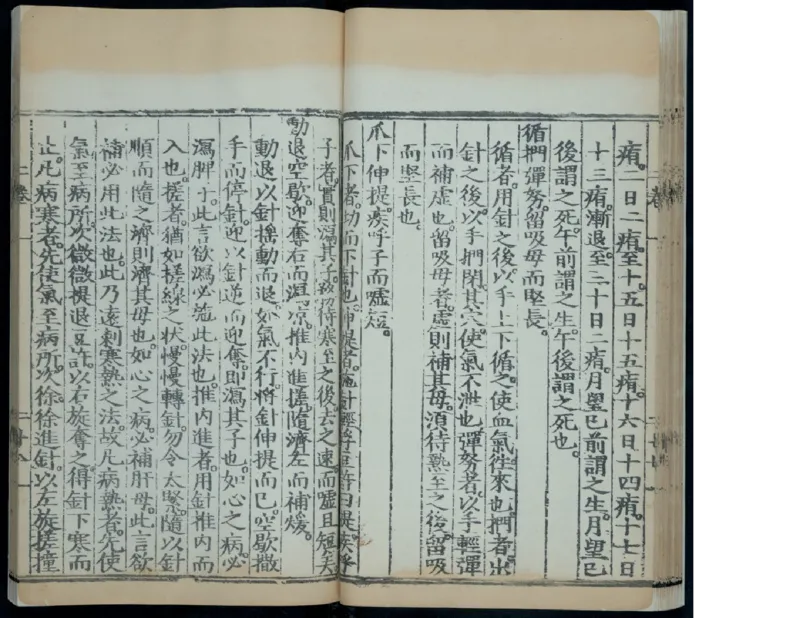 痏一日二痏至十五日十五痏十六日十四痏十七日
十三痏漸退至三十日二痏月望已前謂之生月望已
後謂之死午前謂之生午後謂之死也
循捫彈努留吸母而堅長
循者用針之後以手上下循之使血氣往來也捫者出
針之後以手捫閉其穴使氣不泄也彈努者以手輕彈
而補虛也留吸母者虛則補其母須待熱至之後留吸
而堅長也
爪下伸提疾呼子而噓短
爪下者切而下針也伸提者施針輕浮豆許曰提疾呼
子者實則瀉其子務待寒至之後去之速而噓且短矣
動退空歇迎奪右而瀉凉推內進搓隨濟左而補煖
動退以針搖動而退如氣不行將針伸提而已空歇撒
手而停針迎以針逆而迎奪即瀉其子也如心之病必
瀉脾子此言欲瀉必施此法也推內進者用針推內而
入也搓者猶如搓線之狀慢慢轉針勿令太緊隨以針
順而隨之濟則濟其母也如心之病必補肝母此言欲
補必用此法也此乃遠刺寒熱之法故凡病熱者先使
氣至病所次微微提退豆許以右旋奪之得針下寒而
止凡病寒者先使氣至病所次徐徐進針以左旋搓撞
二卷
二廿八
二卷